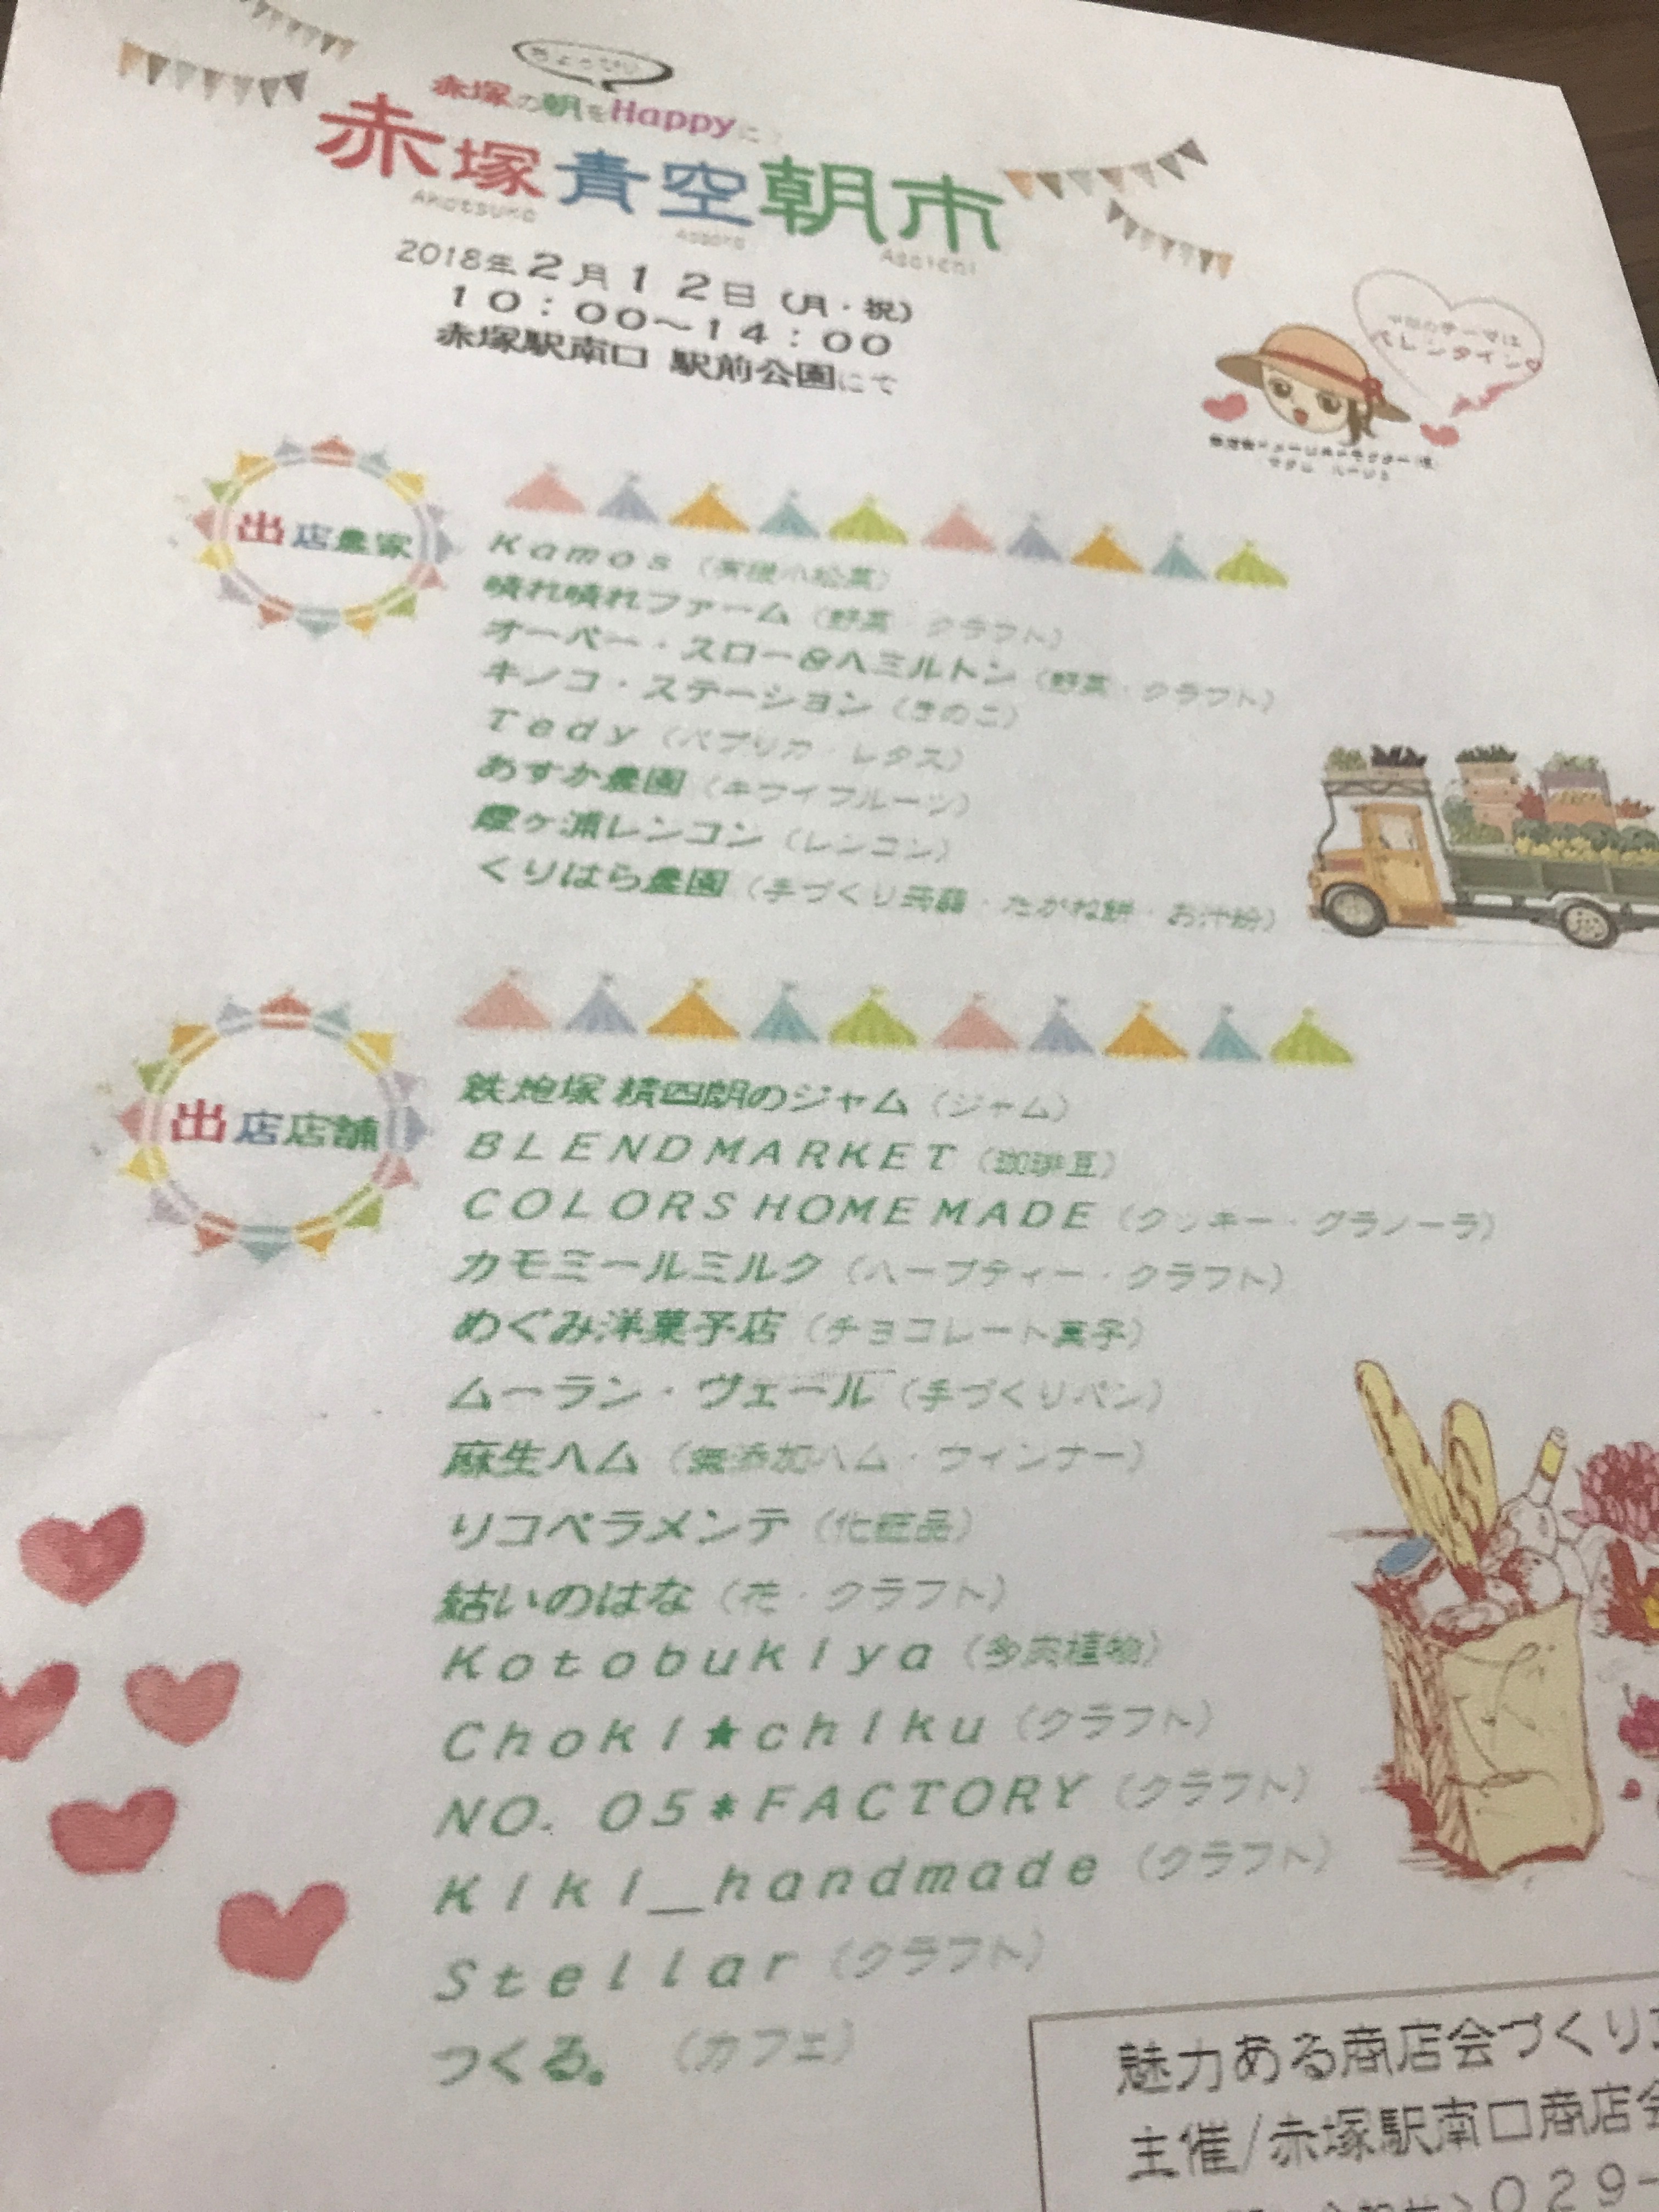 ちょっぴり
赤塚の朝をHappyに
赤塚青空朝市
Akatsuka Aozora Asaichi
2018年2月12日(月・祝)
10:00~14:00
赤塚駅南口 駅前公園にて
今回のテーマは
バレンタイン♡
出店農家
Kamos(有機小松菜)
晴れ晴れファーム(野菜・クラフト)
オーバー・スロー&ハミルトン(野菜・クラフト)
キノコ・ステーション(きのこ)
Tedy(パプリカ・レタス)
あすか農園(キウイフルーツ)
霞ヶ浦レンコン(レンコン)
くりはら農園(手づくり蒟蒻・たがね餅・お汁粉)
出店店舗
鉄炮塚 精四朗のジャム(ジャム)
BLENDMARKET(珈琲豆)
COLORS HOME MADE(クッキー・グラノーラ)
カモミールミルク(ハーブティー・クラフト)
めぐみ洋菓子店(チョコレート菓子)
ムーラン・ヴェール(手づくりパン)
麻生ハム(無添加ハム・ウィンナー)
リコペラメンテ(化粧品)
結いのはな(花・クラフト)
Kotobukiya(多肉植物)
Choki★chiku(クラフト)
NO. 05*FACTORY(クラフト)
Kiki_handmade(クラフト)
Stellar(クラフト)
つくる。(カフェ)
魅力ある商店会づくり
主催/赤塚駅南口商店会
029-